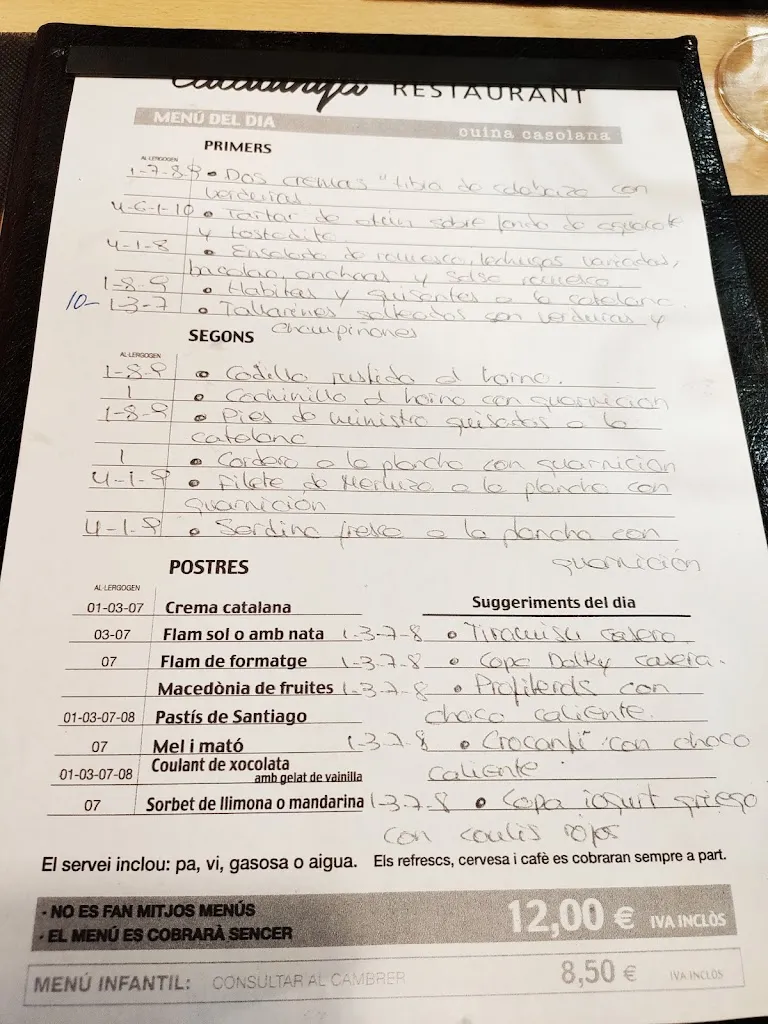 RESTAURANT
MENÚ DEL DIA
cuina casolana
PRIMERS
AL·LERGOGEN
1-7-8-9 • Dos cremas "tibia de calabaza con
verduras
4-6-1-10 • Tartar de atún sobre fondo de aguacate
y tostadita
4-1-8 • Ensalada de romesco, lechugas variadas,
bacalao, anchoas y salsa romesco.
1-8-9 • Habitas y guisantes a la catalana.
10- 1-3-7 • Tallarines salteados con verduras y
champiñones
SEGONS
AL·LERGOGEN
1-8-9 • Codillo rustido al horno.
1 • Cochinillo al horno con guarnición
1-8-9 • Pies de ministro guisados a la
catalana
1 • Cordero a la plancha con guarnición
4-1-9 • Filete de Merluza a la plancha con
guarnición
4-1-9 • Sardina fresca a la plancha con
guarnición
POSTRES
AL·LERGOGEN
01-03-07 Crema catalana
03-07 Flam sol o amb nata
07 Flam de formatge
Macedònia de fruites
01-03-07-08 Pastís de Santiago
07 Mel i mató
01-03-07-08 Coulant de xocolata
amb gelat de vainilla
07 Sorbet de llimona o mandarina
Suggeriments del dia
1-3-7-8 • Tiramisu casero.
1-3-7-8 • Copa Dalky casera.
1-3-7-8 • Profiterols con
choco caliente.
1-3-7-8 • Crocanti con choco
caliente.
1-3-7-8 • Copa iogurt griego
con coulis rojos
El servei inclou: pa, vi, gasosa o aigua. Els refrescs, cervesa i cafè es cobraran sempre a part.
- NO ES FAN MITJOS MENÚS
- EL MENÚ ES COBRARÀ SENCER
12,00 € IVA INCLÒS
MENÚ INFANTIL: CONSULTAR AL CAMBRER 8,50 € IVA INCLÒS